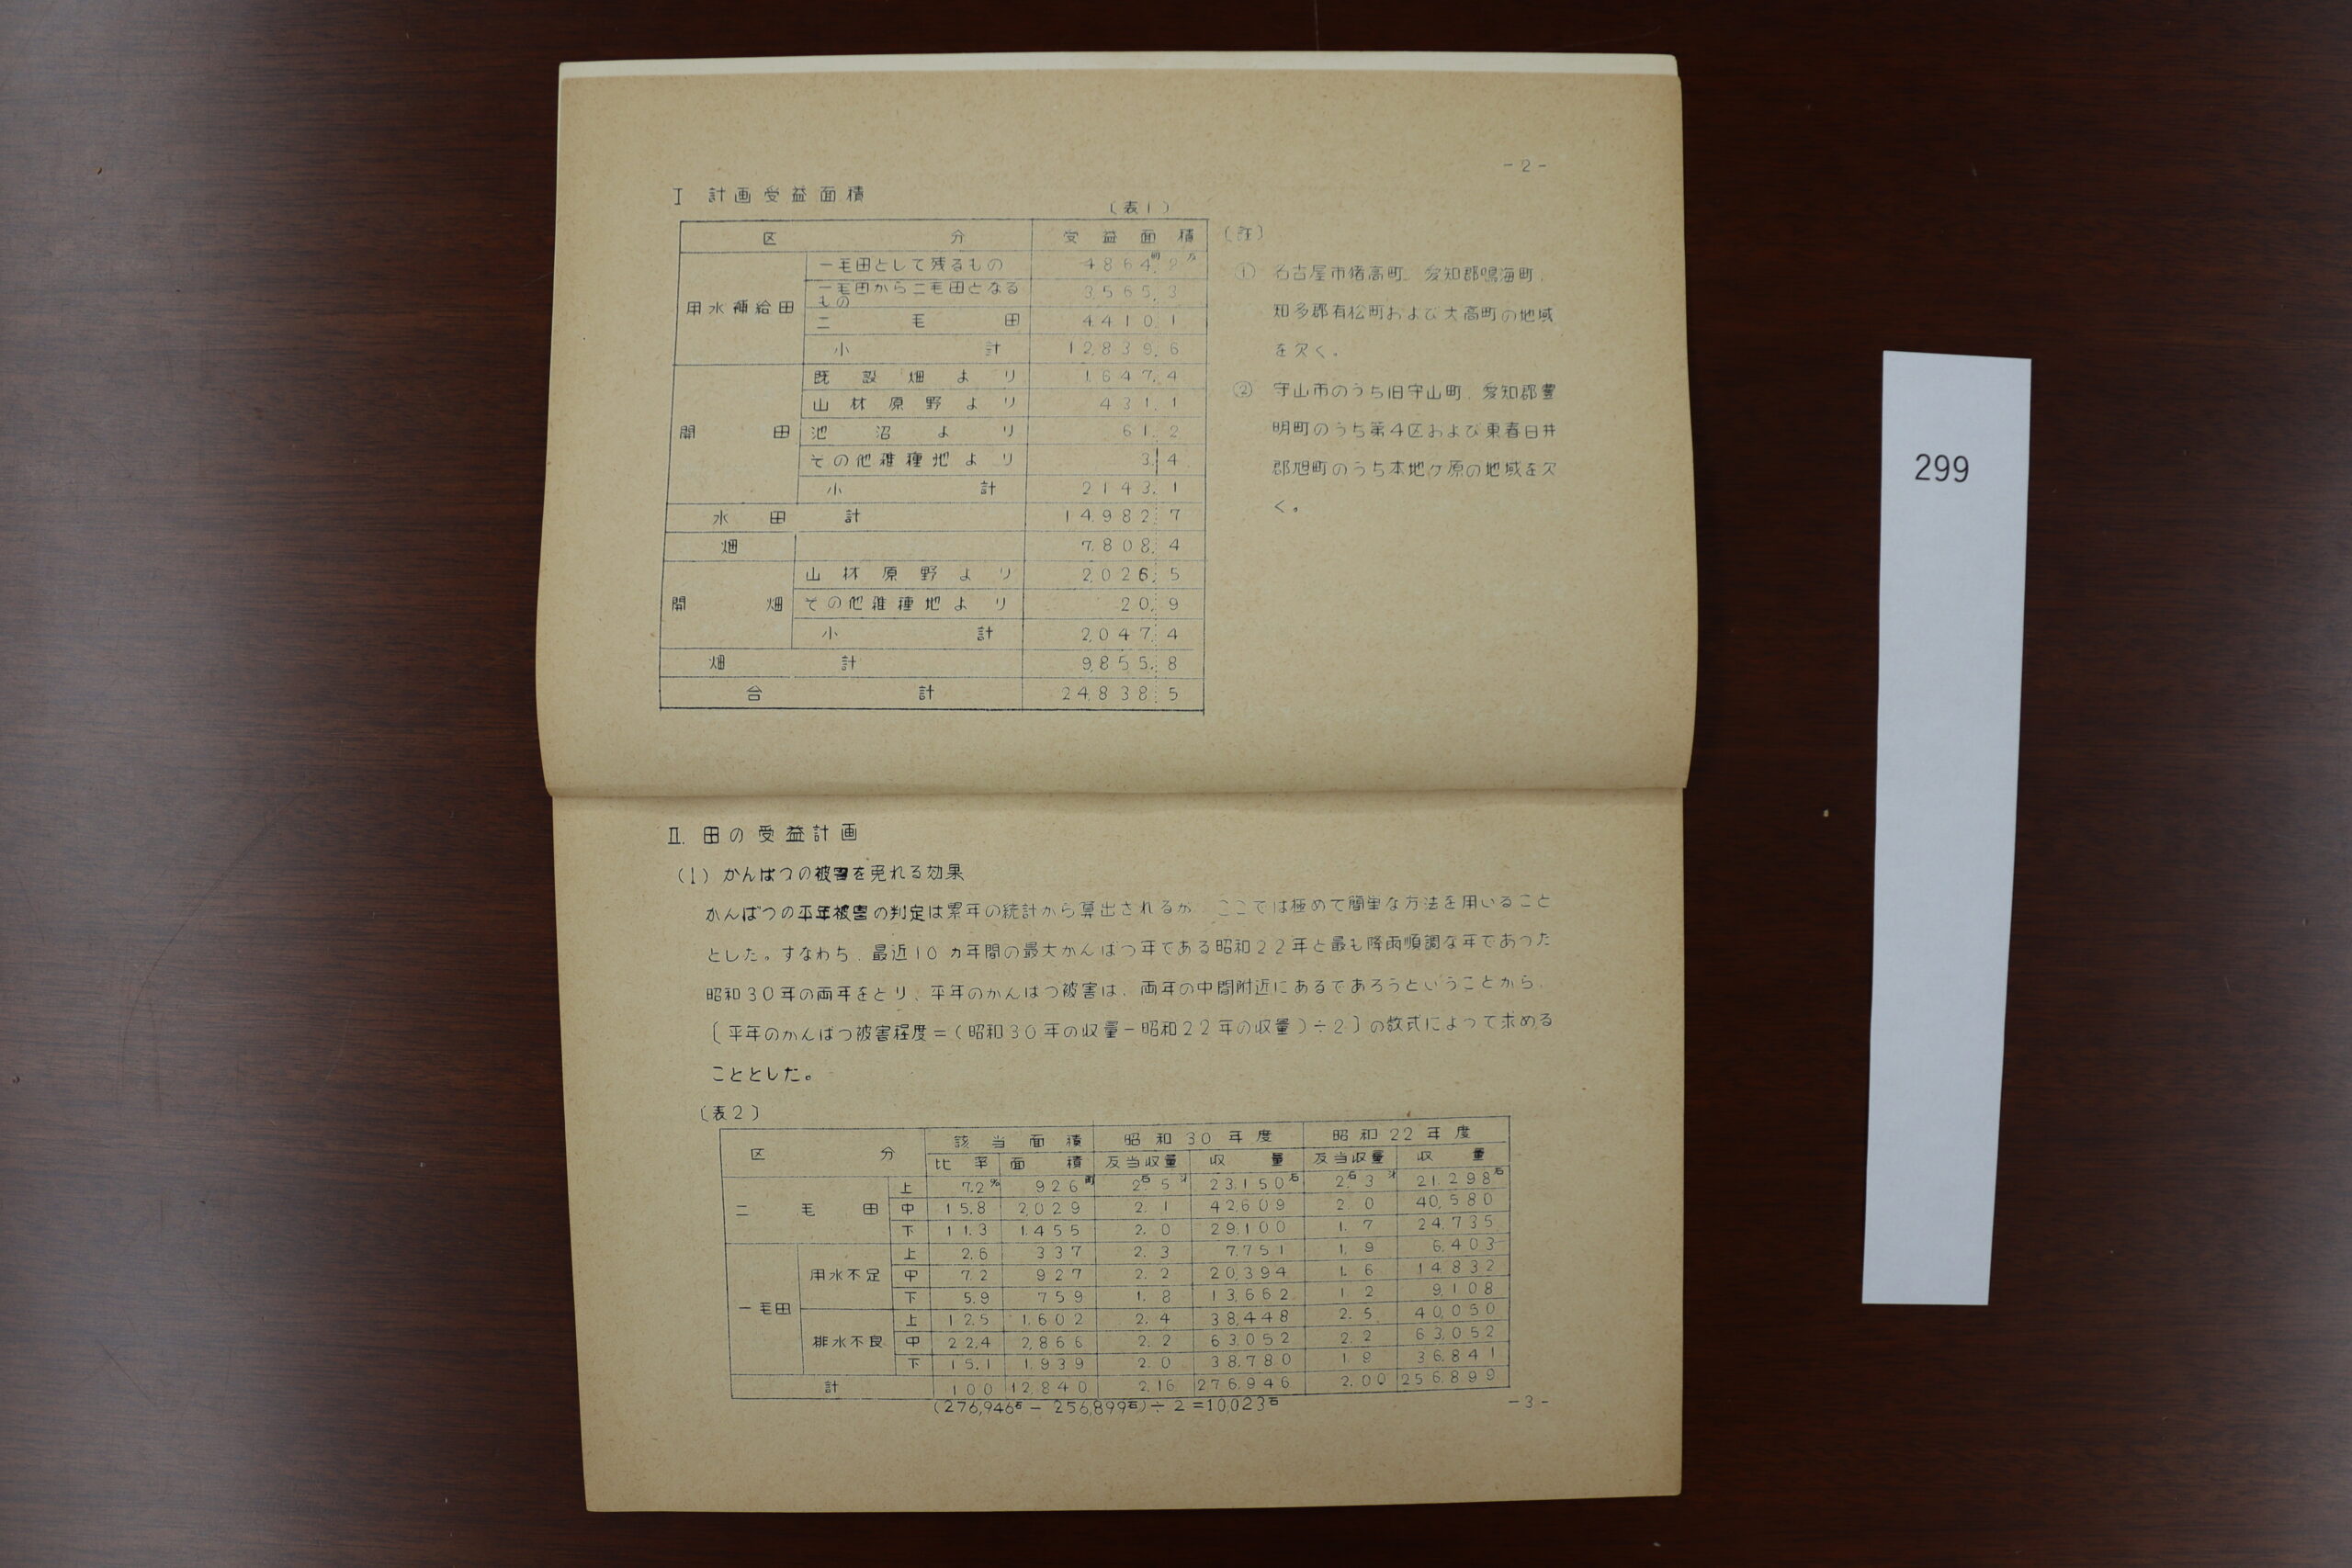 -2-
Ⅰ 計画受益面積
(表1)
区 分 受益面積
用水補給田 一毛田として残るもの 4864町.9反
一毛田から二毛田となるもの 3,565.3
二毛田 4,410.1
小計 12,839.6
開田 既設畑より 1,647.4
山林原野より 431.1
池沼より 61.2
その他雑種地より 3.4
小計 2143.1
水田計 14,982.7
畑 7,808.4
開畑 山林原野より 2,026.5
その他雑種地より 20.9
小計 2,047.4
畑計 9,855.8
合計 24,838.5
(註)
① 名古屋市猪高町、愛知郡鳴海町、
知多郡有松町および大高町の地域
を欠く。
② 守山市のうち旧守山町、愛知郡豊
明町のうち第4区および東春日井
郡旭町のうち本地ケ原の地域を欠
く。
Ⅱ. 田の受益計画
(1) かんばつの被害を免れる効果
かんばつの平年被害の判定は累年の統計から算出されるが、ここでは極めて簡単な方法を用いること
とした。すなわち、最近10ヵ年間の最大かんばつ年である昭和22年と最も降雨順調な年であつた
昭和30年の両年をとり、平年のかんばつ被害は、両年の中間附近にあるであろうということから、
〔平年のかんばつ被害程度=(昭和30年の収量-昭和22年の収量)÷2〕の数式によつて求める
こととした。
〔表2〕
区 分 該当面積 昭和30年度 昭和22年度
比率 面積 反当収量 収量 反当収量 収量
二毛田 上 7.2% 926町 2石.5斗 23,150石 2石.3斗 21,298石
中 15.8 2,029 2.1 42,609 2.0 40,580
下 11.3 1,455 2.0 29,100 1.7 24,735
一毛田 用水不足 上 2.6 337 2.3 7,751 1.9 6,403
中 7.2 927 2.2 20,394 1.6 14,832
下 5.9 759 1.8 13,662 1.2 9,108
排水不良 上 12.5 1,602 2.4 38,448 2.5 40,050
中 22.4 2,866 2.2 63,052 2.2 63,052
下 15.1 1,939 2.0 38,780 1.9 36,841
計 100 12,840 2.16 276,946 2.00 256,899
(276,946石 - 256,899石)÷2=10,023石
-3-
299